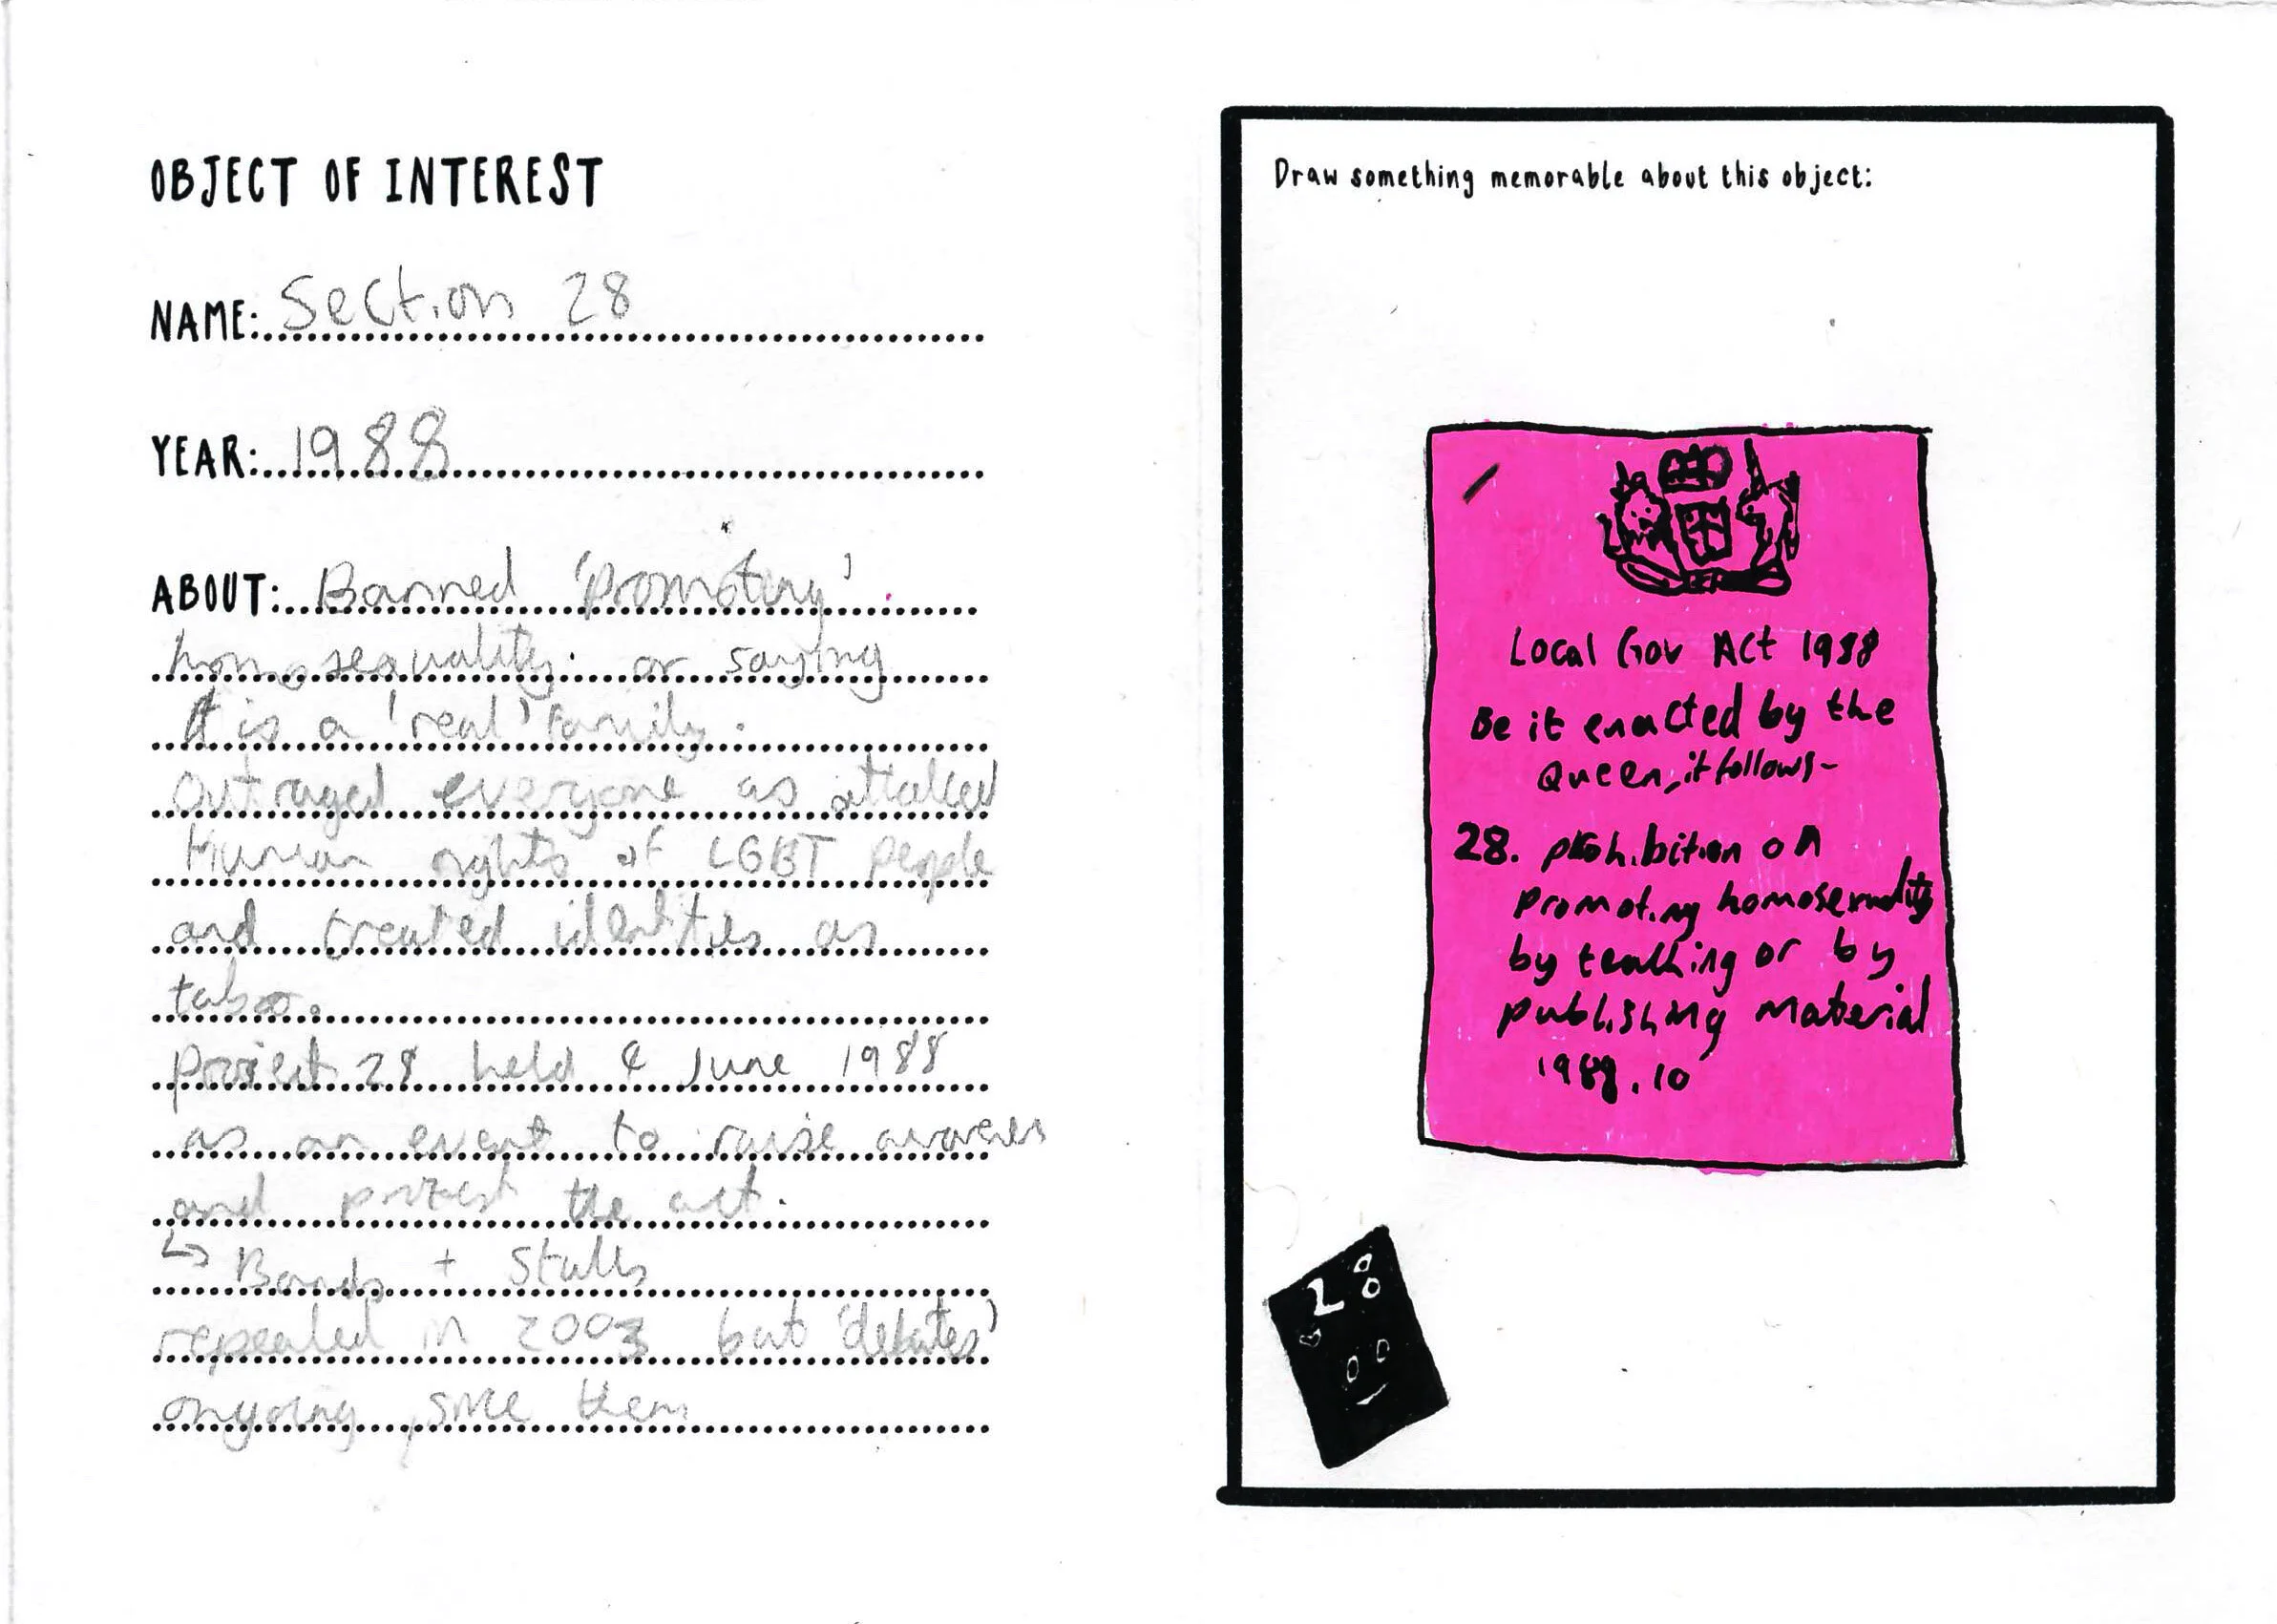 OBJECT OF INTEREST
NAME: Section 28
YEAR: 1988
ABOUT: Banned 'promoting'
homosexuality. or saying
it is a 'real' family.
Outraged everyone as attacked
Human rights of LGBT people
and treated identities as
taboo.
Project 28 held 4 June 1988
as an event to raise awareness
and protest the act.
↳ Bands + Stalls
repealed in 2003 but 'debates'
ongoing since then
Draw something memorable about this object:
Local Gov Act 1988
Be it enacted by the
Queen, it follows-
28. prohibition on
promoting homosexuality
by teaching or by
publishing material
1988.10
28